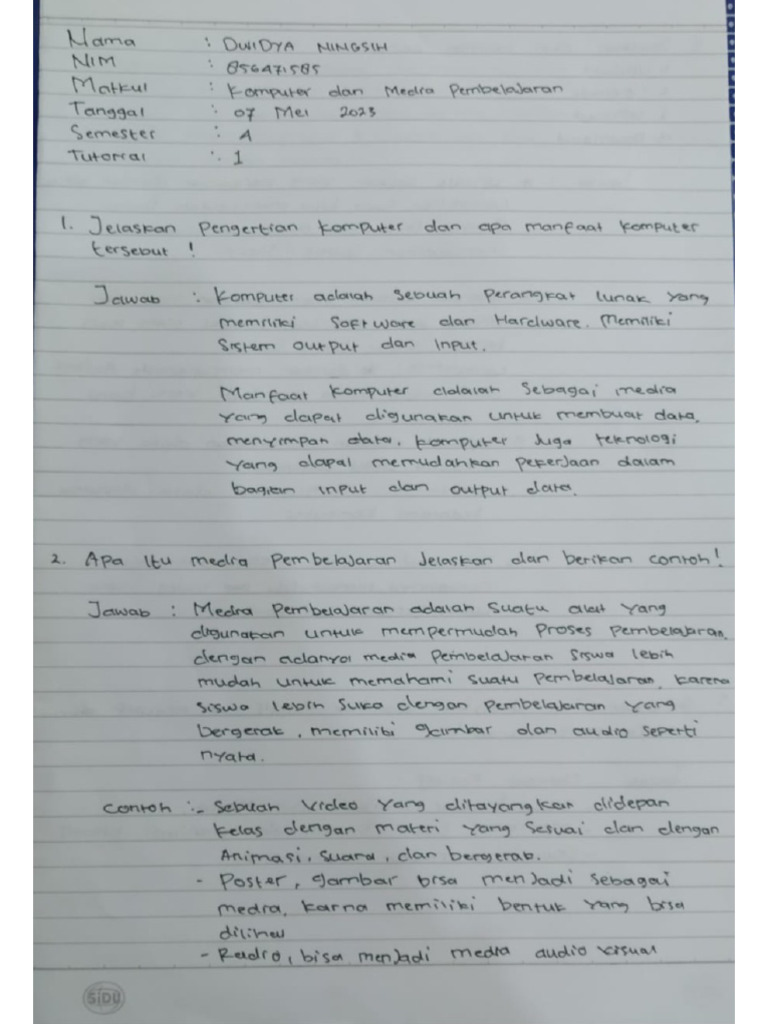 Nama : DWIDYA NINGSIH
NIM : 856471585
Matkul : Komputer dan Media Pembelajaran
Tanggal : 07 Mei 2023
Semester : 4
Tutorial : 1
1. Jelaskan Pengertian Komputer dan apa manfaat Komputer
tersebut !
Jawab : Komputer adalah sebuah perangkat lunak yang
memiliki Software dan Hardware. Memiliki
Sistem output dan Input.
Manfaat Komputer adalah sebagai media
yang dapat digunakan untuk membuat data,
menyimpan data. Komputer Juga teknologi
yang dapat memudahkan pekerjaan dalam
bagian input dan output data.
2. Apa Itu media Pembelajaran Jelaskan dan berikan contoh!
Jawab : Media Pembelajaran adalah suatu alat yang
digunakan untuk mempermudah Proses Pembelajaran.
dengan adanya media Pembelajaran Siswa lebih
mudah untuk memahami suatu Pembelajaran, karena
siswa lebih suka dengan pembelajaran yang
bergerak, memiliki gambar dan audio seperti
nyata.
Contoh :- Sebuah Video yang ditayangkan didepan
kelas dengan materi yang sesuai dan dengan
Animasi, suara, dan bergerak.
- Poster, gambar bisa menjadi sebagai
media, karna memiliki bentuk yang bisa
dilihat
- Radio, bisa menjadi media audio visual
SIDU